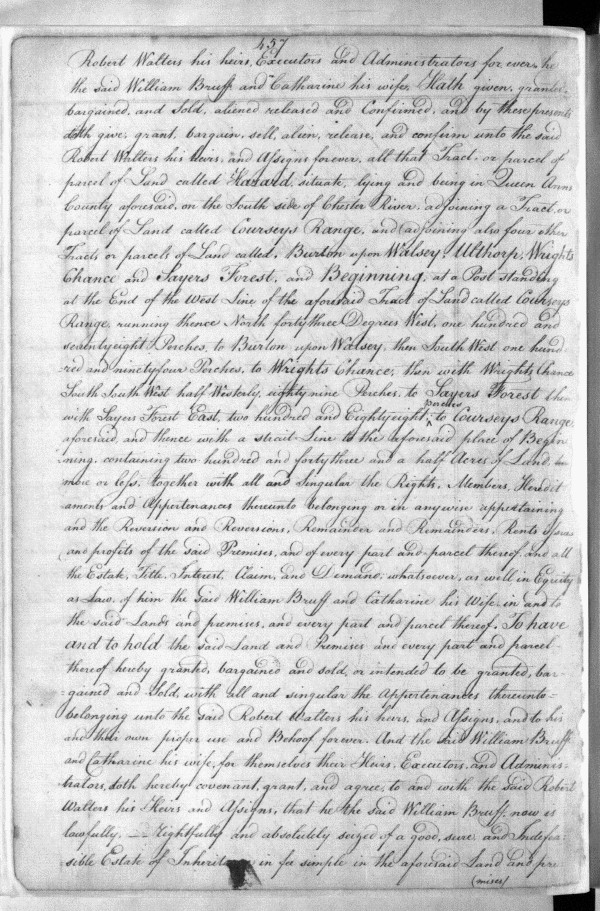 457
Robert Walters his heirs, Executors and Administrators for ever, he
the said William Bruff and Catharine his wife, Hath given, granted,
bargained, and Sold, aliened released and Confirmed, and by these presents
doth give, grant, bargain, sell, alien, release, and confirm unto the said
Robert Walters his heirs, and Assigns forever, all that Tract, or parcel of
parcel of Land called Hazard, situate, lying and being in Queen Anns
County aforesaid, on the South side of Chester River, adjoining a Tract, or
parcel of Land called Courseys Range, and adjoining also four other
Tracts or parcels of Land called, Burton upon Walsey, Ulthorp, Wrights
Chance and Sayers Forest, and Beginning, at a Post standing
at the End of the West Line of the aforesaid Tract of Land called Courseys
Range, running thence North forty three Degrees West, one hundred and
seventyeight Perches, to Burton upon Walsey, then South West one hund
-red and ninetyfour Perches, to Wrights Chance, then with Wrights Chance
South South West half Westerly, eighty nine Perches, to Sayers Forest then
with Sayers Forest East, two hundred and Eightyeight perches to Courseys Range
aforesaid, and thence with a strait Line to the aforesaid place of Begin
-ning, containing two hundred and fortythree and a half Acres of Land,
more or less, together with all and singular the Rights, Members, Heredit
aments and Appertenances thereunto belonging or in anywise appertaining
and the Reversion and Reversions, Remainder and Remainders, Rents Issues
and profits of the said Premises, and of every part and parcel thereof, and all
the Estate, Title, Interest, Claim, and Demand, whatsoever, as well in Equity
as Law, of him the said William Bruff and Catharine his Wife, in and to
the said Lands and premises, and every part and parcel thereof, To have
and to hold the said Land and Premises and every part and parcel
thereof hereby granted, bargained and sold, or intended to be granted, bar-
-gained and Sold, with all and singular the Appertenances thereunto
belonging unto the said Robert Walters his heirs, and Assigns, and to his
and their own proper use and Behoof forever. And the said William Bruff
and Catharine his wife, for themselves their Heirs, Executors, and Adminis-
trators, doth hereby covenant, grant, and agree, to and with the said Robert
Walters his Heirs and Assigns, that he the said William Bruff, now is
lawfully, Rightfully and absolutely seized of a good, sure and Indefea-
sible Estate of Inheritance in fee simple in the aforesaid Land and pre
(mises)